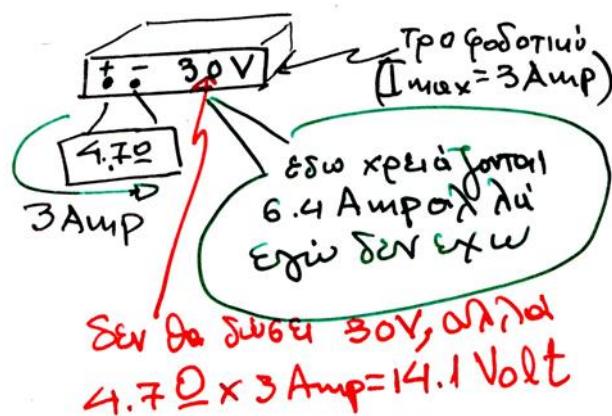 + - 30V
τροφοδοτικό
(Imax=3 Amp)
4.7Ω
3 Amp
εδω χρειάζονται
6.4 Amp αλλά
εγώ δεν εχω
δεν θα δώσει 30V, αλλα
4.7Ω x 3 Amp=14.1 Volt